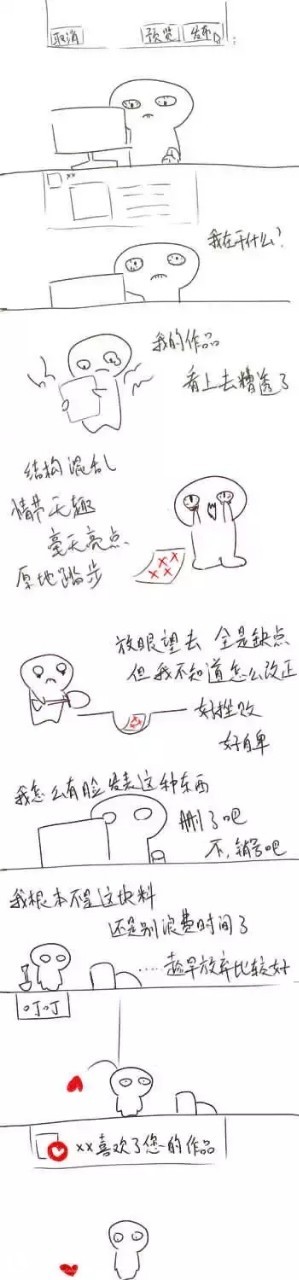 取消 预览 发布
xx
我在干什么?
我的作品
看上去糟透了
结构混乱
情节无趣
毫无亮点
原地踏步
放眼望去 全是缺点
但我不知道怎么改正
好挫败
好自卑
我怎么有脸发表这种东西
删了吧
不,销号吧
我根本不是这块料
还是别浪费时间了
……趁早放弃比较好
叮叮
xx喜欢了您的作品